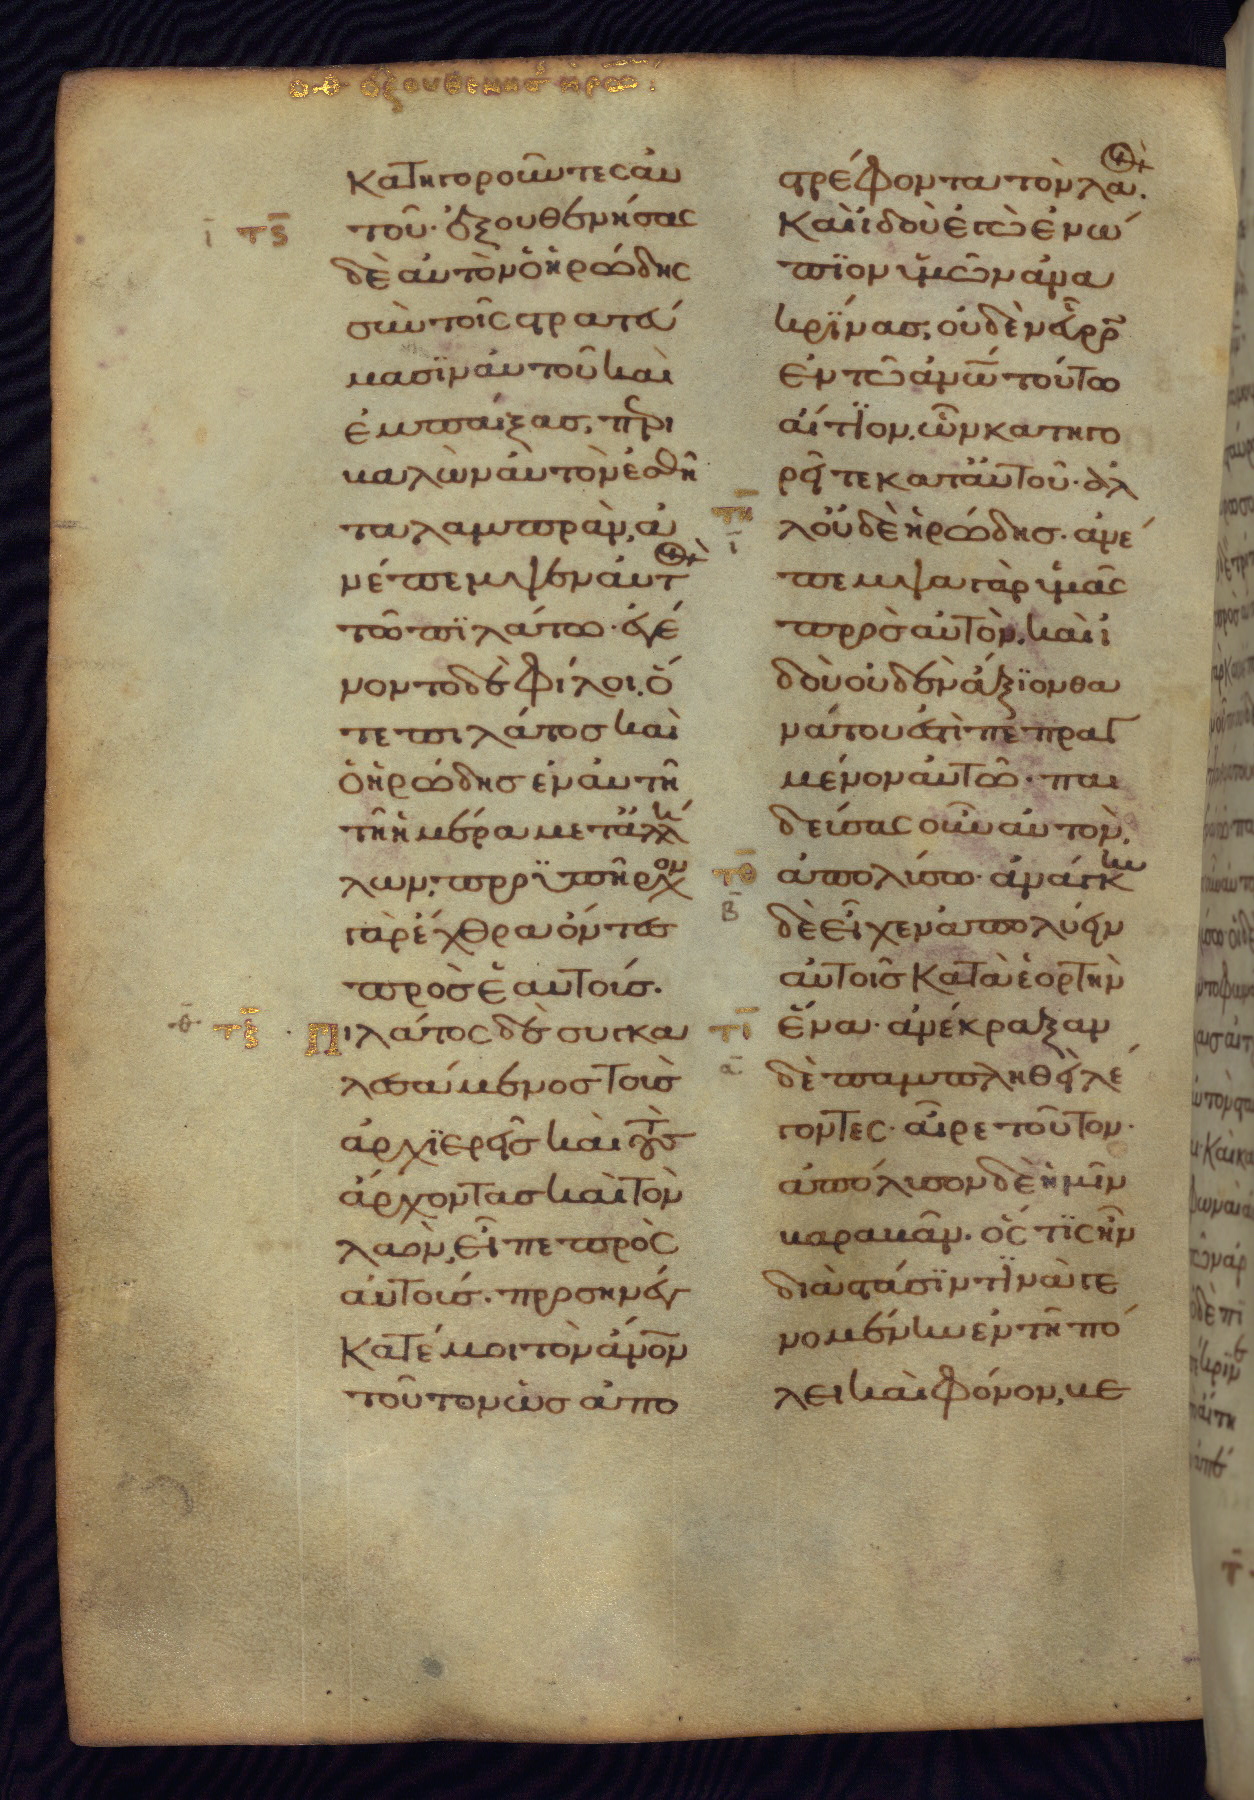 οθ ἐξουθενήσ ἡρώδ
κατηγοροῦντες αὐ
τοῦ· ἐξουθενήσας
ῑ τ̄ς̄
δὲ αὐτὸν ὁ ἡρώδης
σὺν τοῖς στρατεύ
μασϊν αὐτοῦ καὶ
ἐμπαίξας, περι
βαλὼν αὐτὸν ἐσθῆ
τα λαμπρὰν, ἀ
νέπεμψεν αὐτ
τῶ πϊλάτω· ἐγέ
νοντο δὲ φίλοι, ὅ
τε πιλάτος καὶ
ὁ ἡρώδησ ἐν αὐτῆ
τῆ ἡμέρα μετ᾽ ἀλλή
λων· προϋπῆρχον
γὰρ ἔχθρα ὄντες
πρὸσ ἑαυτούσ.
θ̄ τ̄ζ̄
Πιλάτος δὲ συγκα
λεσάμενοσ τοὺσ
ἀρχϊερεῖσ καὶ τοὺς
ἄρχοντας καὶ τὸν
λαὸν, εἶπε πρὸς
αὐτούσ· προσηνέγ
κατέ μοι τὸν ἄν̅ον
τοῦτον ὡσ ἀπο
στρέφοντα τὸν λα,
καὶ ἰδοὺ ἐγὼ ἐνώ
πϊον ὑμῶν ἀνα
κρϊνας, οὐδὲν εὗρο
ἐν τῶ ἀν̅ω τούτω
αἴτϊον, ὧν κατηγο
ρεῖτε κατ᾽ αὐτοῦ· ἀλ
τ̄η̄
ῑ
λ᾽ οὐδὲ ἡρώδησ· ἀνέ
πεμψα γὰρ ὑμᾶς
πρὸσ αὐτὸν, καὶ ἰ
δοὺ οὐδὲν ἄξϊον θα
νάτου ἐστὶ πεπραγ
μένον αὐτῶ· παι
δεύσας οὖν αὐτὸν,
τ̄θ̄
β̄
ἀπολύσω· ἀνάγκην
δὲ εἶχεν ἀπολύειν
αὐτοῖσ κατὰ ἑορτὴν
τ̄ῑ
ᾱ
ἕνα· ἀνέκραξαν
δὲ παμπληθεὶ λέ
γοντες· αἶρε τοῦτον·
ἀπόλυσον δὲ ἡμῖν
βαραβᾶν· ὅς τϊς ἦν
διὰ στάσϊν τϊνὰ γε
νομένην ἐν τῆ πό
λει καὶ φόνον, βε